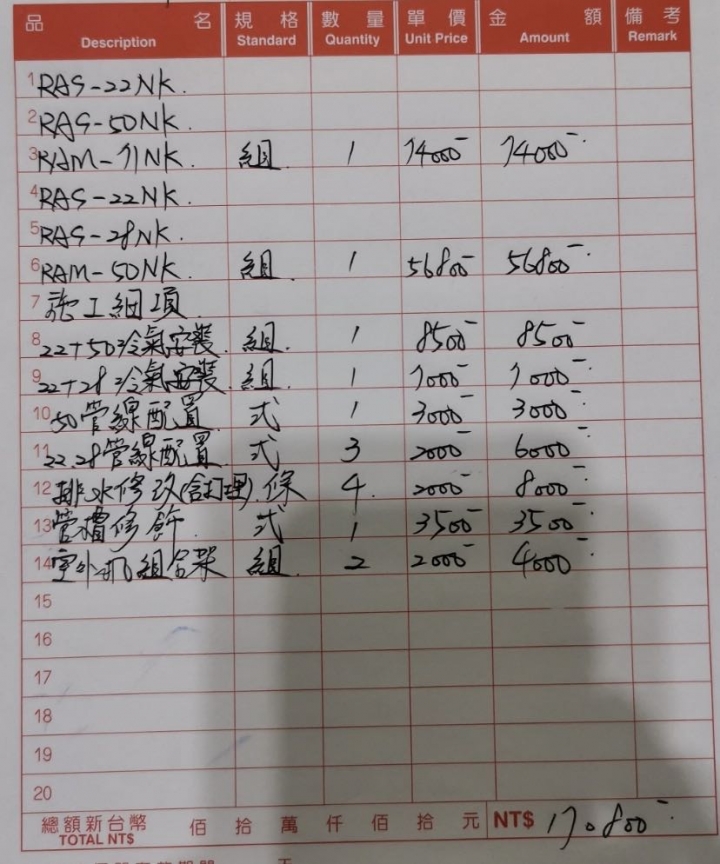 品 名 規 格 數 量 單 價 金 額 備 考
Description Standard Quantity Unit Price Amount Remark
1 RAS-22NK.
2 RAS-50NK.
3 RAM-71NK. 組 1 74000- 74000-.
4 RAS-22NK.
5 RAS-28NK.
6 RAM-50NK. 組. 1 56800- 56800-.
7 施工細項.
8 22+50冷氣安裝. 組. 1 8500- 8500-.
9 22+28冷氣安裝. 組. 1 7000- 7000-.
10 50管線配置. 式 1 3000- 3000-.
11 22.28管線配置. 式 3 2000- 6000-.
12 排水修改(含打理). 條 4. 2000- 8000-.
13 管槽修飾. 式 1 3500- 3500-.
14 室外机組合架 組. 2 2000- 4000-.
15
16
17
18
19
20
總額新台幣 佰 拾 萬 仟 佰 拾 元 NT$ 170800-.
TOTAL NT$